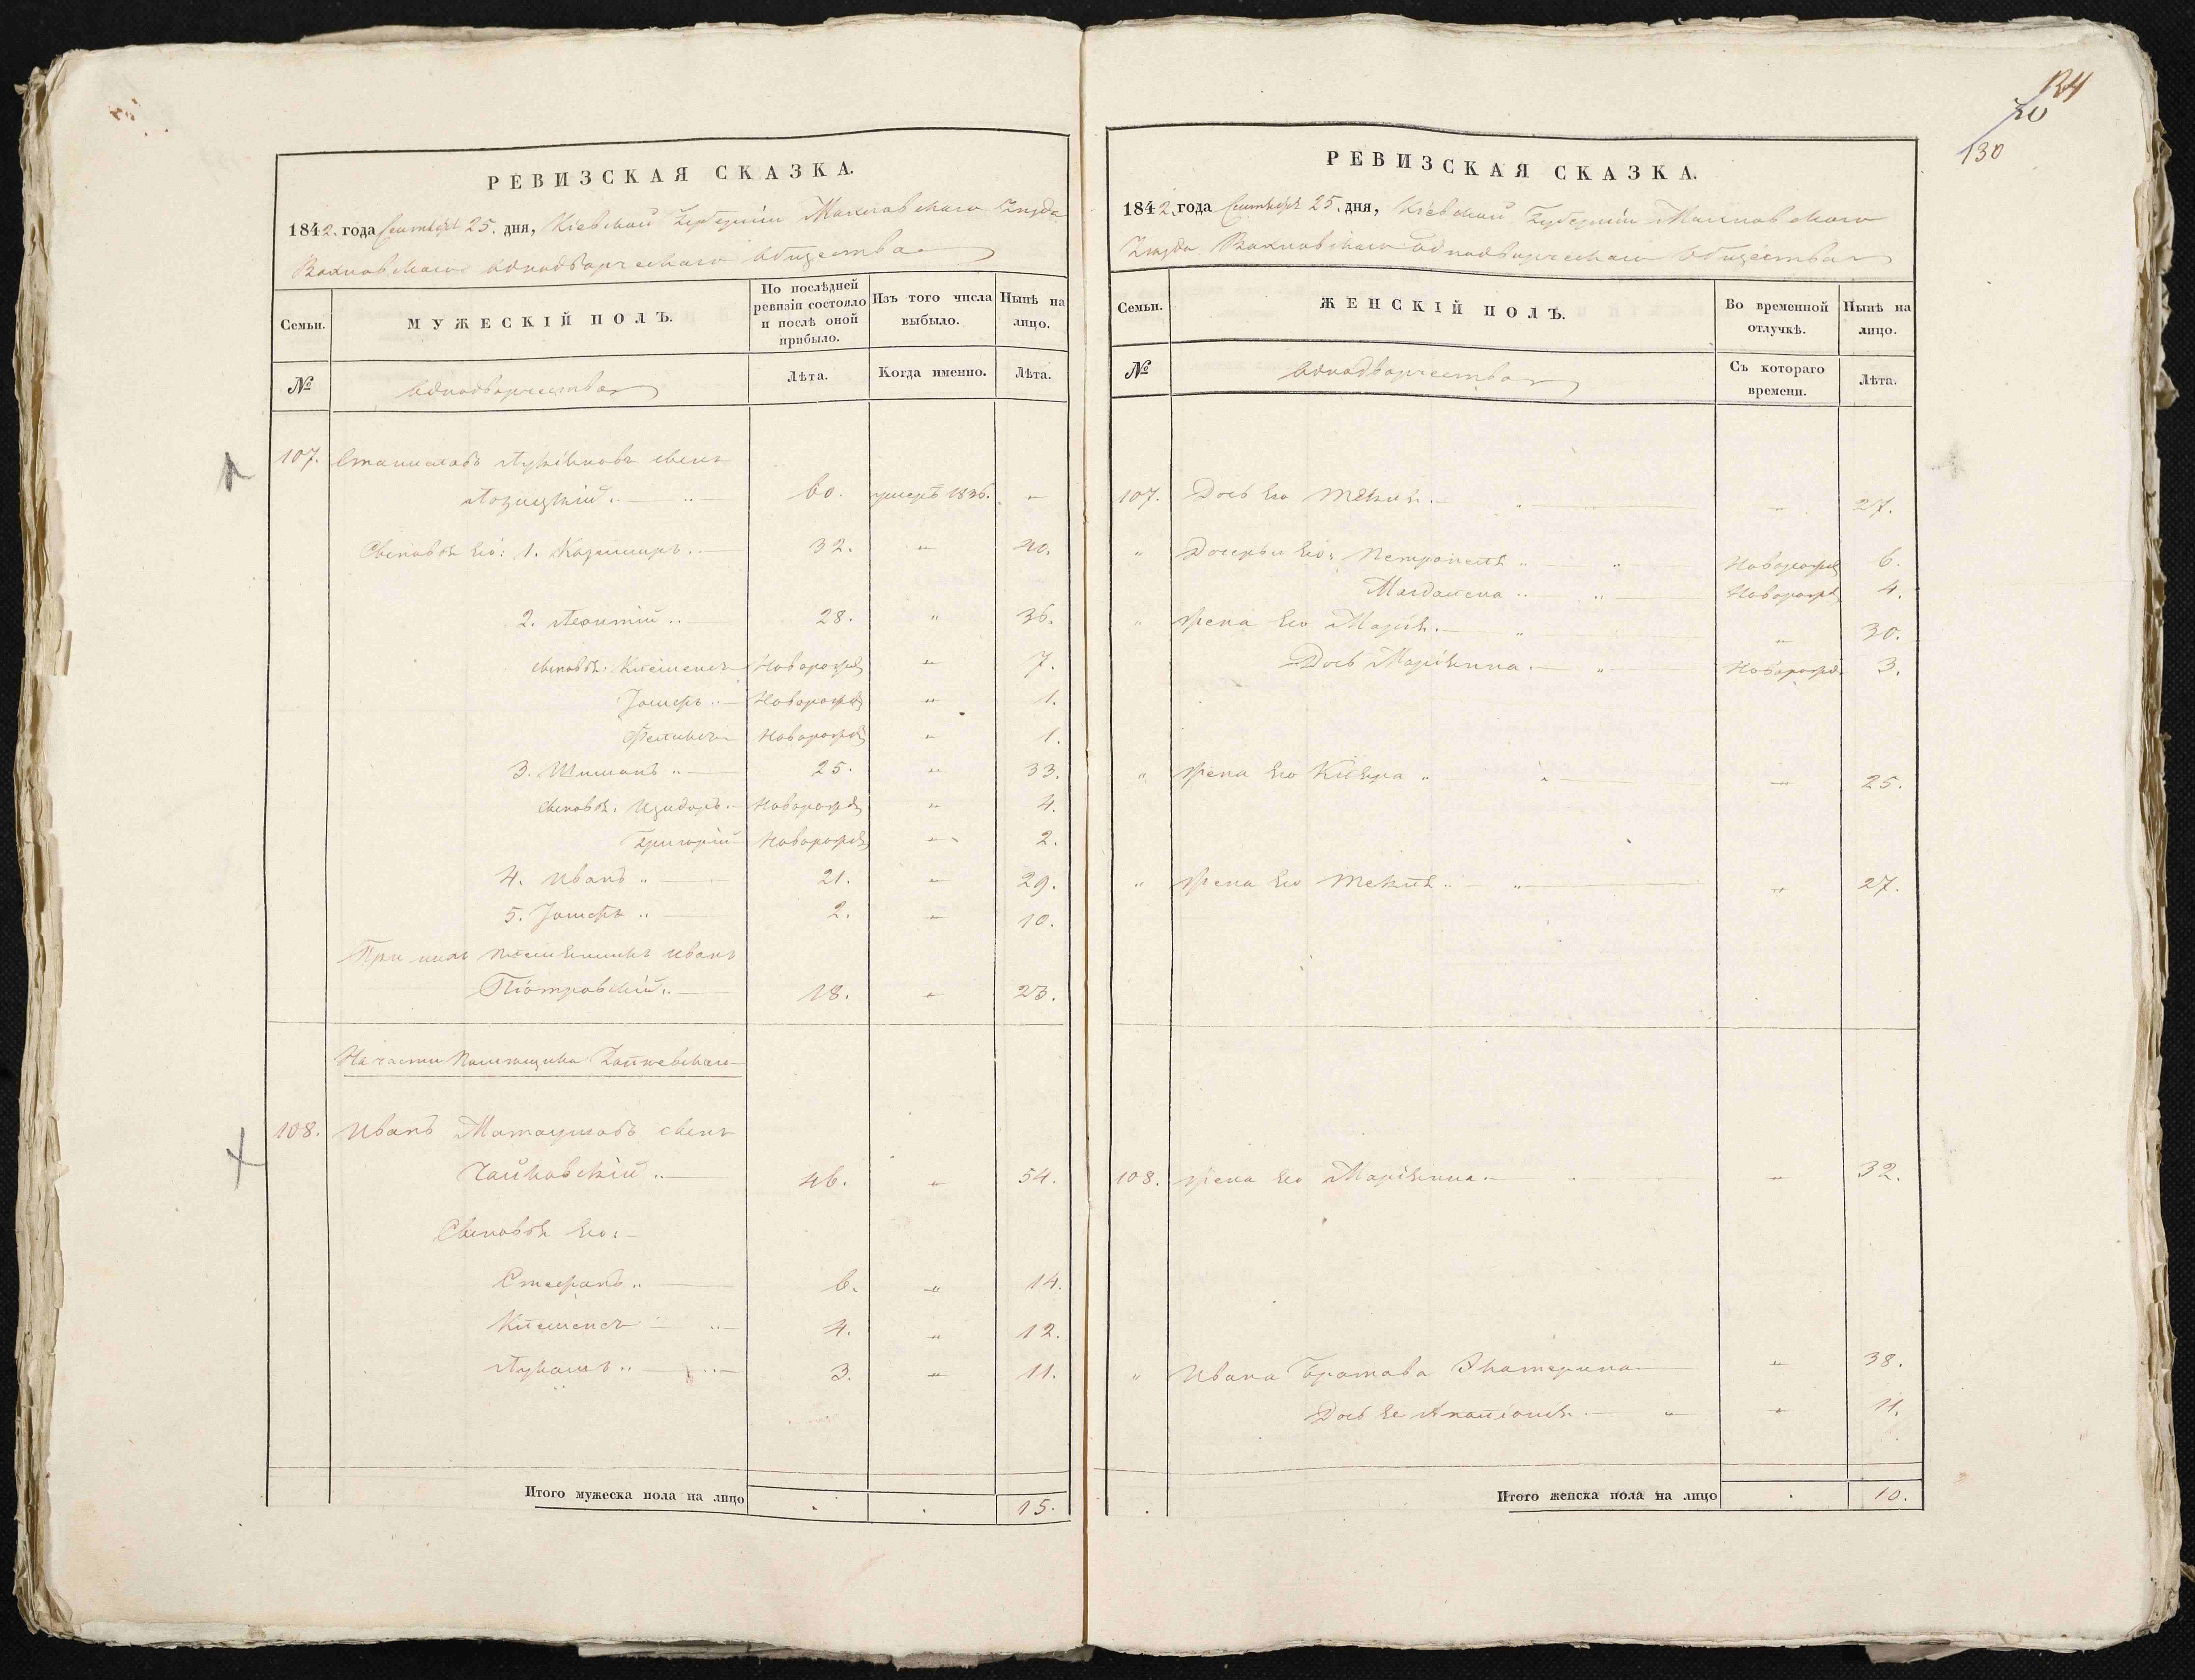 134
70
130
РЕВИЗСКАЯ СКАЗКА.
1842. года Сентября 25. дня, Кіевской Губерніи Махновскаго Уезда
Вахновскаго однодворческаго общества
Семьи.
МУЖЕСКІЙ ПОЛЪ.
По послѣдней ревизіи состояло и послѣ оной прибыло.
Изъ того числа выбыло.
Нынѣ на лицо.
№
однодворчества
Лѣта.
Когда именно.
Лѣта.
107. Станиславъ сынъ
Лозицкій 60. умеръ 1836. "
Сыновья Его: 1. Казимиръ 32. " 40.
2. Леонтій 28. " 36.
сыновья: Клеменсъ Новорожд 7.
Іосифъ Новорожд " 1.
Феликсъ Новорожд " 1.
3. Шимонъ 25. " 33.
сыновья: Изидоръ Новорожд " 4.
Григорій Новорожд " 2.
4. Иванъ 21. " 29.
5. Іосифъ 2. " 10.
При нихъ племянникъ Иванъ
Піотровскій 18. " 23.
На части Помѣщика
108. Иванъ Матеушовъ сынъ
Чайковскій 46. " 54.
Сыновья Его:
Стефанъ 6. " 14.
Клеменсъ 4. " 12.
Лукашъ 3. " 11.
Итого мужеска пола на лицо . . 15.
РЕВИЗСКАЯ СКАЗКА.
1842. года Сентября 25. дня, Кіевской Губерніи Махновскаго
Уезда Вахновскаго однодворческаго общества
Семьи.
ЖЕНСКІЙ ПОЛЪ.
Во временной отлучкѣ.
Нынѣ на лицо.
№
однодворчества
Съ котораго времени.
Лѣта.
107. Дочь Его Текля " 27.
" Дочерьи Его: Петронеля Новорожд 6.
Магдалена Новорожд 4.
" жена Его Марія " 30.
Дочь Маріянна Новорожд. 3.
" жена Его Кляра " 25.
" жена Его Текля " 27.
108. жена Его Маріянна " 32.
" Ивана Братова Экатерина " 38.
Дочь Ее Аполіонія " 11.
Итого женска пола на лицо . 10.